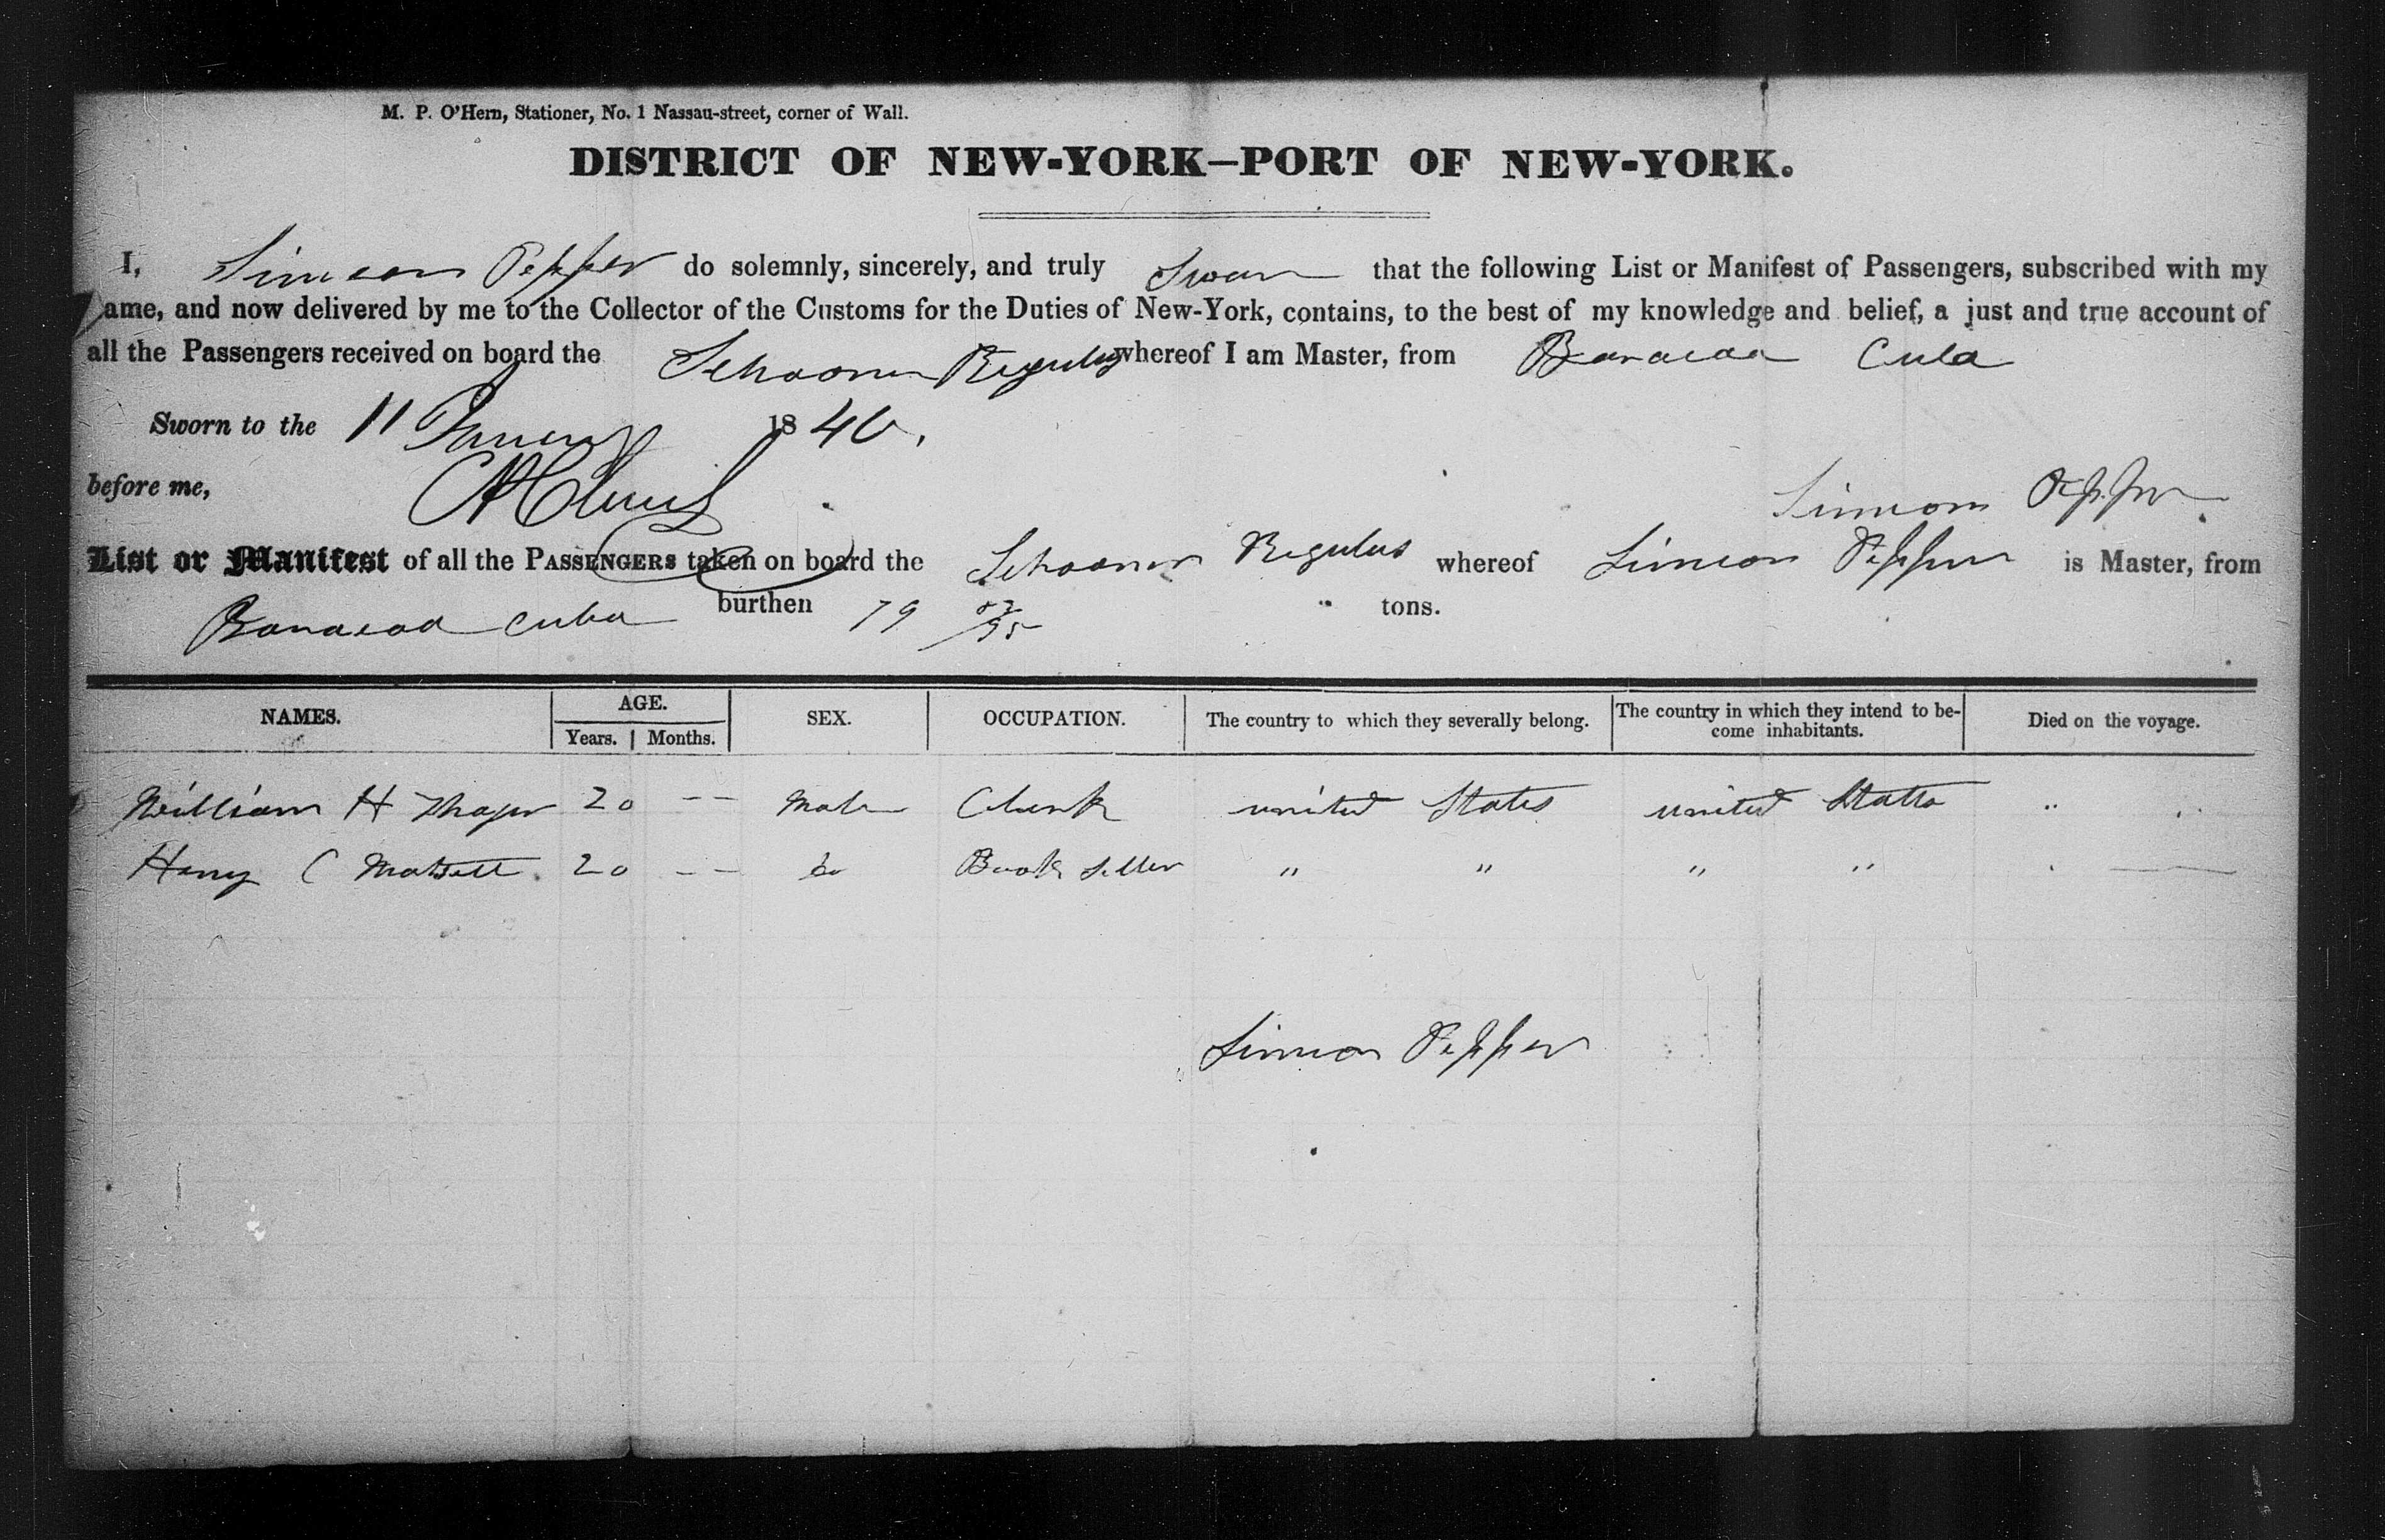 M. P. O'Hern, Stationer, No. 1 Nassau-street, corner of Wall.
DISTRICT OF NEW-YORK—PORT OF NEW-YORK.
I, Simeon Pepper do solemnly, sincerely, and truly Swear that the following List or Manifest of Passengers, subscribed with my
ame, and now delivered by me to the Collector of the Customs for the Duties of New-York, contains, to the best of my knowledge and belief, a just and true account of
all the Passengers received on board the Schooner Regulus whereof I am Master, from Baracoa Cuba
Sworn to the 11 January 1840.
before me,
Simeon Pepper
List or Manifest of all the PASSENGERS taken on board the Schooner Regulus whereof Simeon Pepper is Master, from
Baracoa Cuba burthen 79 tons.
NAMES. AGE. SEX. OCCUPATION. The country to which they severally belong. The country in which they intend to be- Died on the voyage.
Years. Months. come inhabitants.
William H Thayer 20 -- Male Clerk united States united States "
Henry C 20 -- do Book Seller " " " "
Simeon Pepper